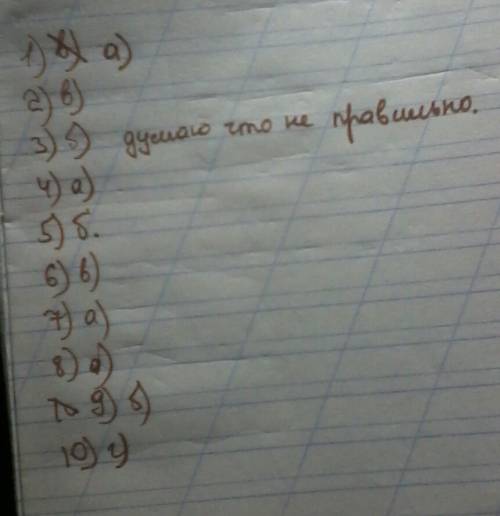 1) а)
2) в)
3) б) думаю что не правильно.
4) а)
5) б.
6) в)
7) а)
8) а)
9) б)
10) г)